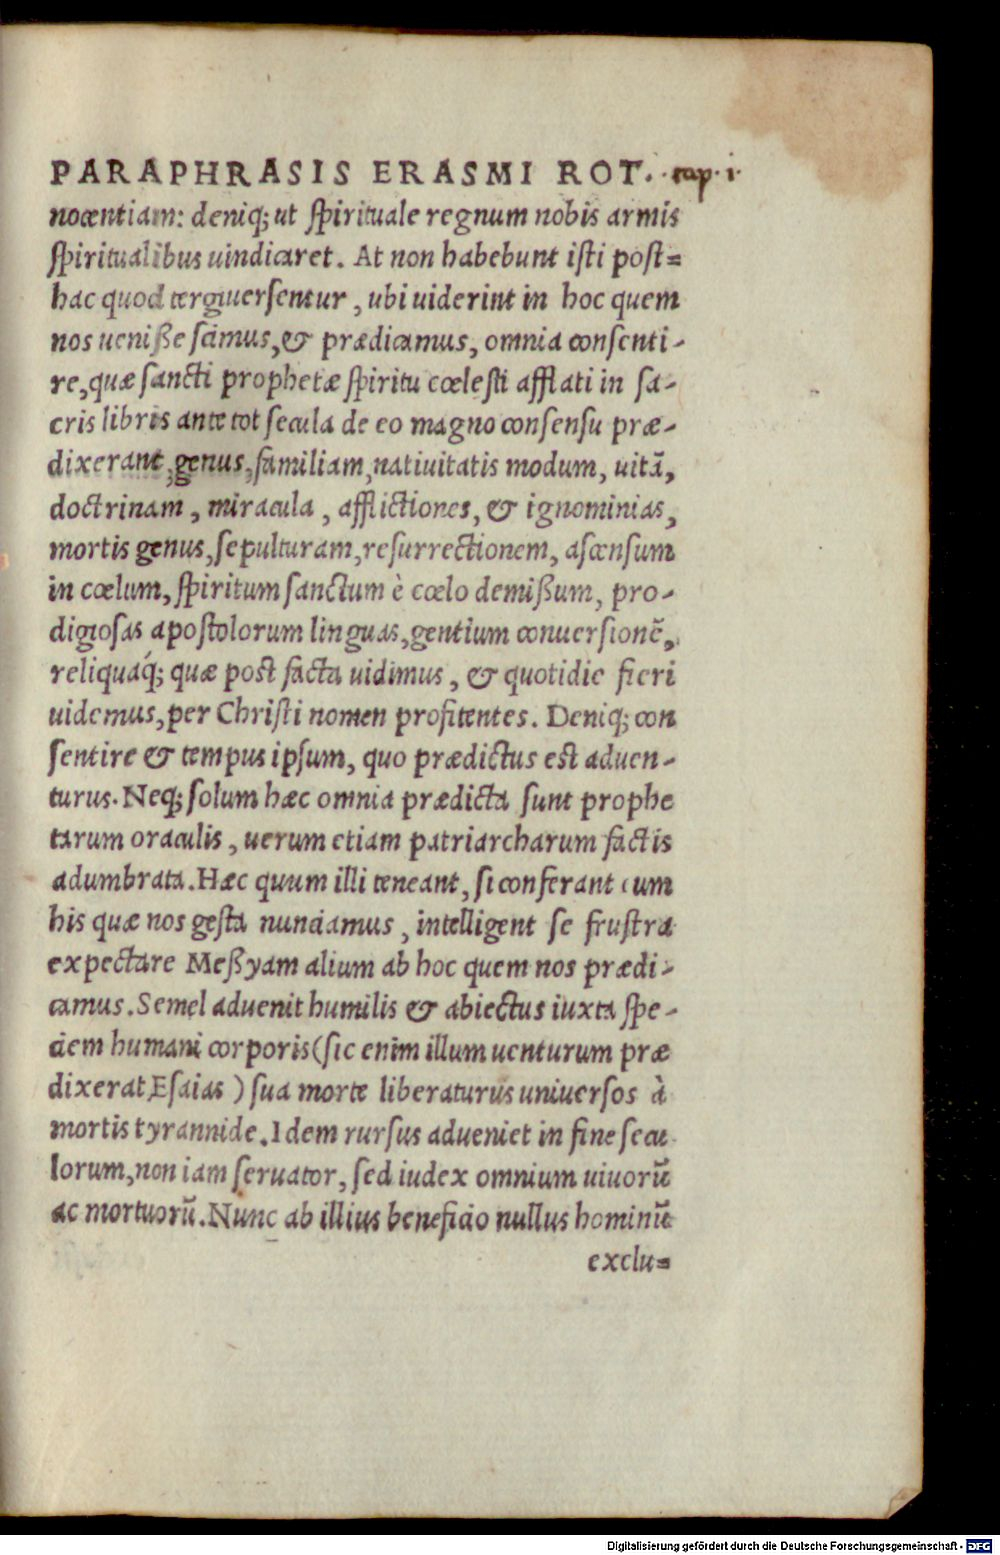 PARAPHRASIS ERASMI ROT. cap. 1.
nocentiam: deniq; ut spirituale regnum nobis armis
spiritualibus uindicaret. At non habebunt isti post=
hac quod tergiuersentur, ubi uiderint in hoc quem
nos ueniße scimus, & prædicamus, omnia consenti-
re, quæ sancti prophetæ spiritu cœlesti afflati in sa-
cris libris ante tot secula de eo magno consensu præ-
dixerant, genus, familiam, natiuitatis modum, uitā,
doctrinam, miracula, afflictiones, & ignominias,
mortis genus, sepulturam, resurrectionem, ascensum
in cœlum, spiritum sanctum è cœlo demißum, pro-
digiosas apostolorum linguas, gentium conuersionē,
reliquaq́; quæ post facta uidimus, & quotidie fieri
uidemus, per Christi nomen profitentes. Deniq; con
sentire & tempus ipsum, quo prædictus est aduen-
turus. Neq; solum hæc omnia prædicta sunt prophe
tarum oraculis, uerum etiam patriarcharum factis
adumbrata. Hæc quum illi teneant, si conferant cum
his quæ nos gesta nunciamus, intelligent se frustra
expectare Meßyam alium ab hoc quem nos prædi-
camus. Semel aduenit humilis & abiectus iuxta spe-
ciem humani corporis (sic enim illum uenturum præ
dixerat Esaias) sua morte liberaturus uniuersos à
mortis tyrannide. Idem rursus adueniet in fine secu
lorum, non iam seruator, sed iudex omnium uiuorū
ac mortuorū. Nunc ab illius beneficio nullus hominū
exclu=
Digitalisierung gefördert durch die Deutsche Forschungsgemeinschaft - DFG